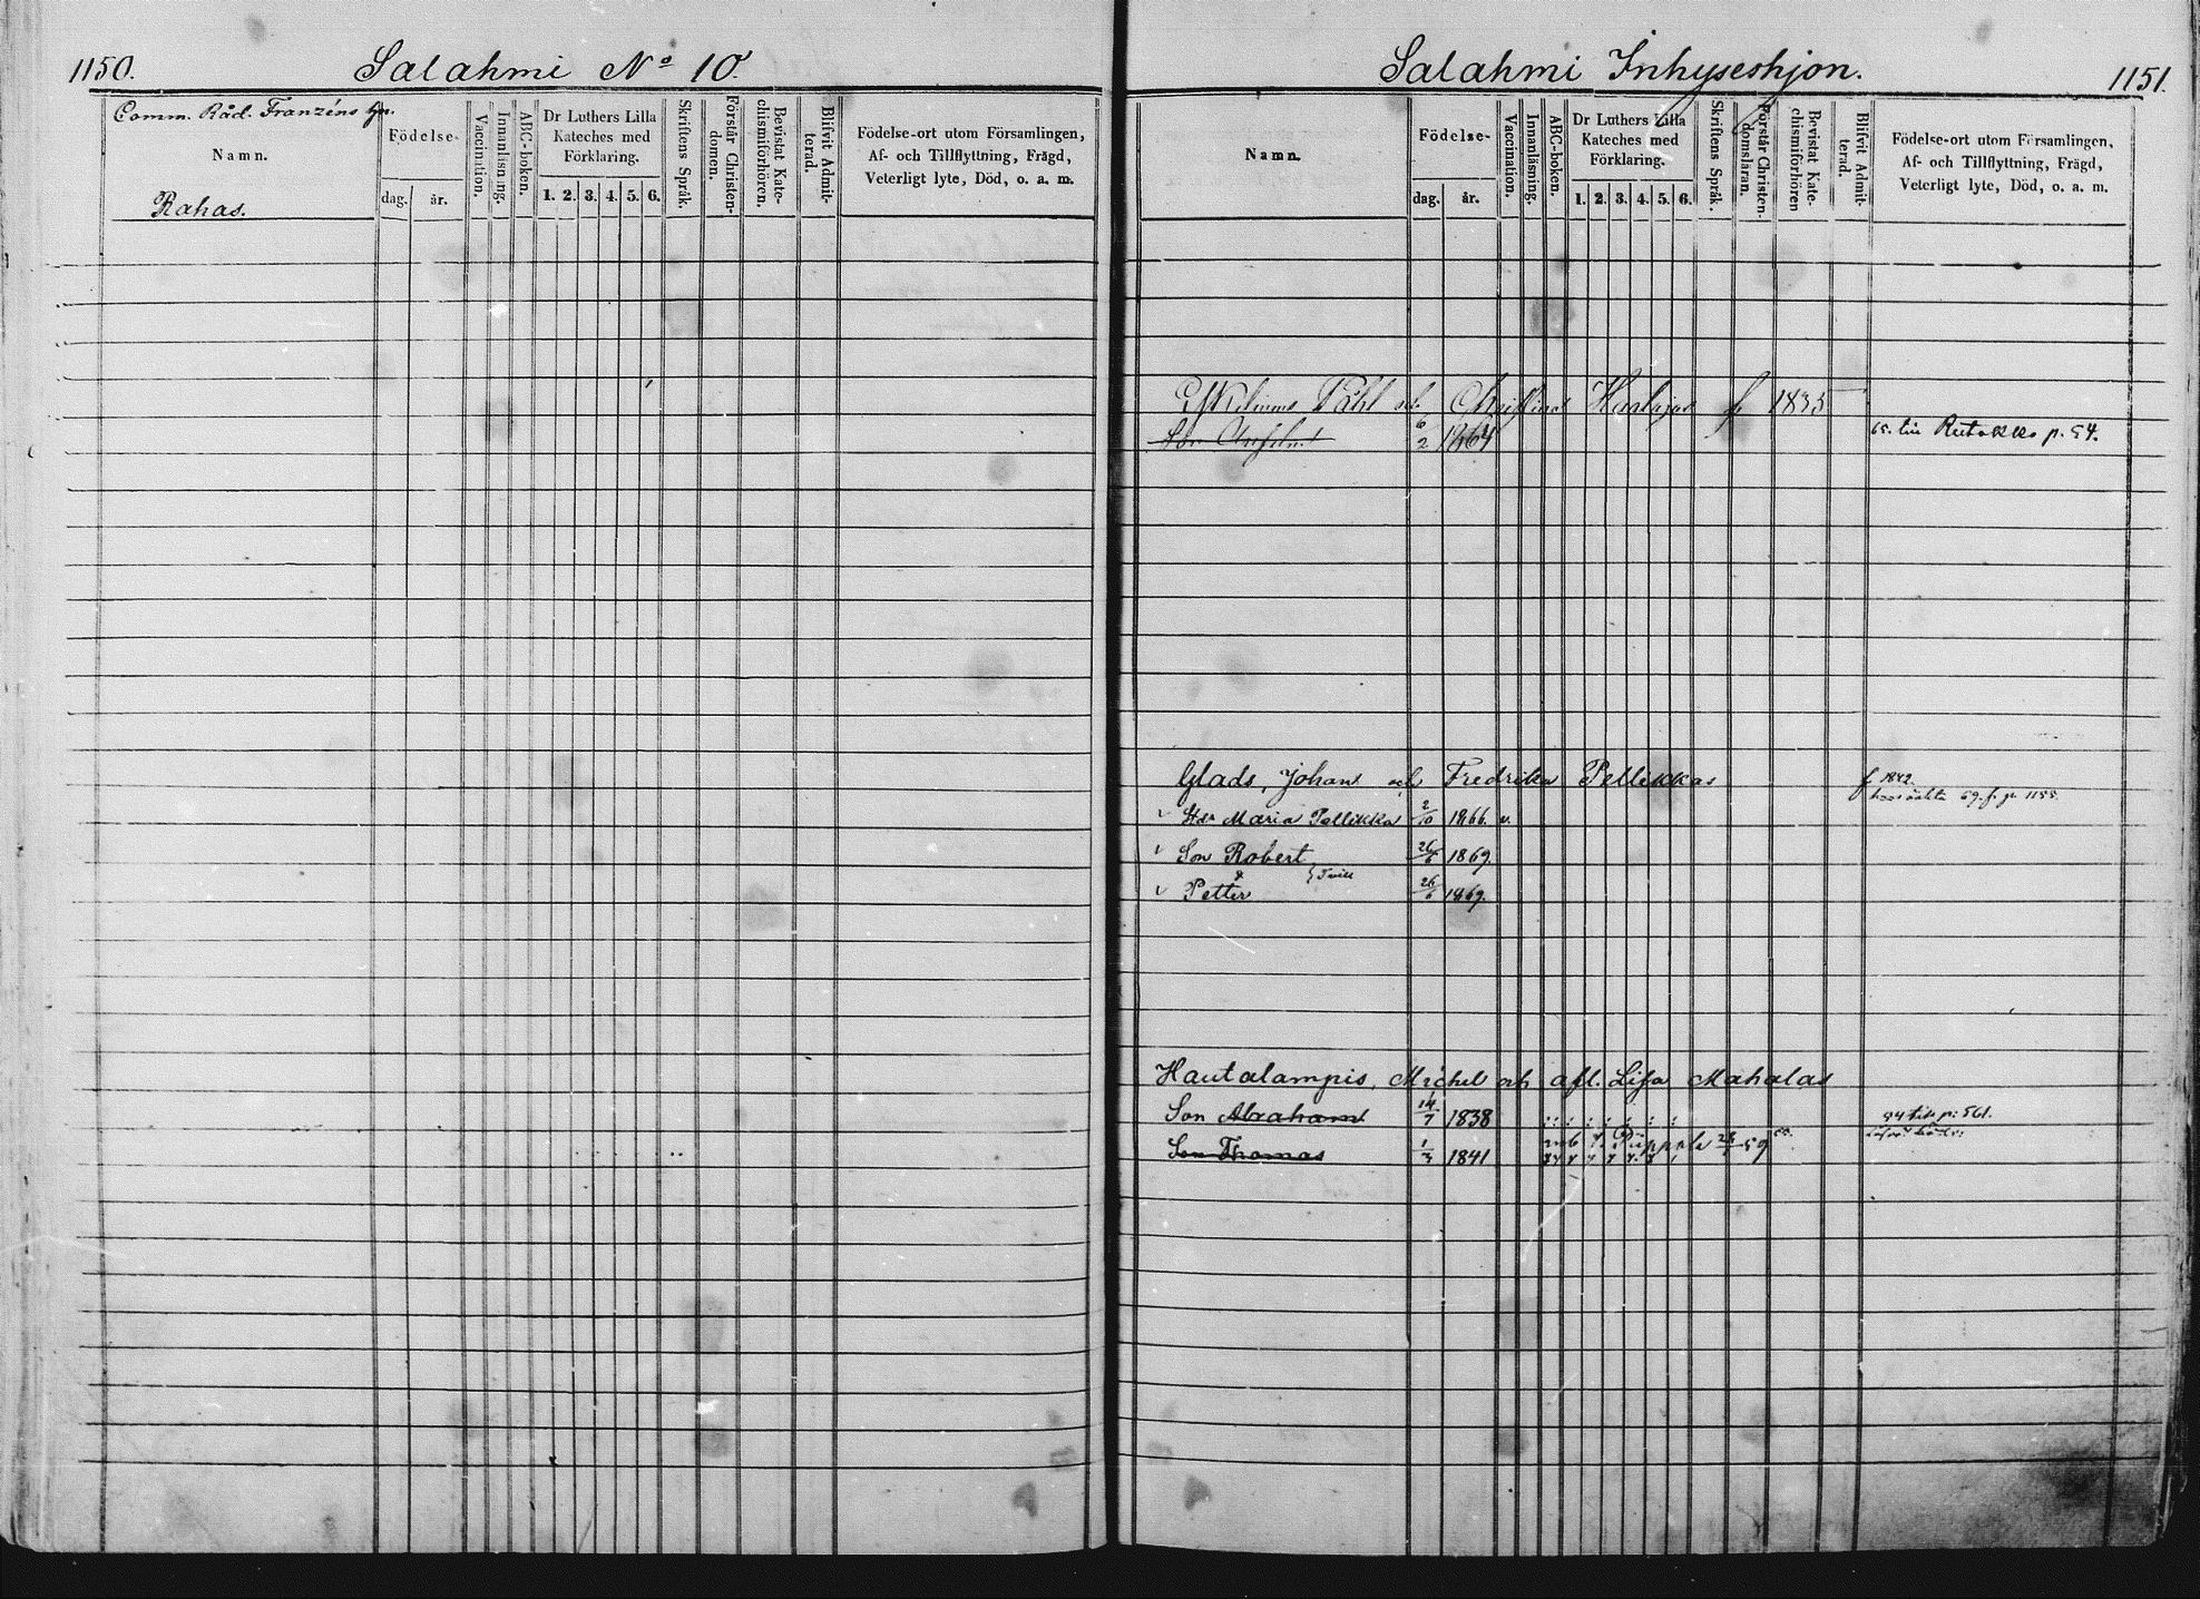 1150.
Salahmi No 10.
Comm. Råd. Franzéns
Namn.
Rahas.
Födelse-
dag.
år.
Vaccination.
Innanläsning.
ABC-boken.
Dr Luthers Lilla
Kateches med
Förklaring.
1. 2. 3. 4. 5. 6.
Skriftens Språk.
Förstår Christen-
domen.
Bevistat Kate-
chismiförhören.
Blifvit Admit-
terad.
Födelse-ort utom Församlingen,
Af- och Tillflyttning, Frägd,
Veterligt lyte, Död, o. a. m.
Salahmi Inhyseshjon.
1151.
Namn.
Födelse-
dag.
år.
Vaccination.
Innanläsning.
ABC-boken.
Dr Luthers Lilla
Kateches med
Förklaring.
1. 2. 3. 4. 5. 6.
Skriftens Språk.
Förstår Christen-
domsläran.
Bevistat Kate-
chismiförhören
Blifvit Admit-
terad.
Födelse-ort utom Församlingen,
Af- och Tillflyttning, Frägd,
Veterligt lyte, Död, o. a. m.
Påhl och Christina f 1835
6/2 1864 65. p. 54.
Glads, Johan och Fredrika Pellikkas f 1842.
69. p. 1155.
Maria Pellikka 2/10 1866. v.
Son Robert 26/6 1869.
& Tvill
Petter 26/6 1869.
Hautalampis, Michel och afl. Lisa Mahalas
Son Abraham 14/7 1838 p: 561.
Son Thomas 1/3 1841